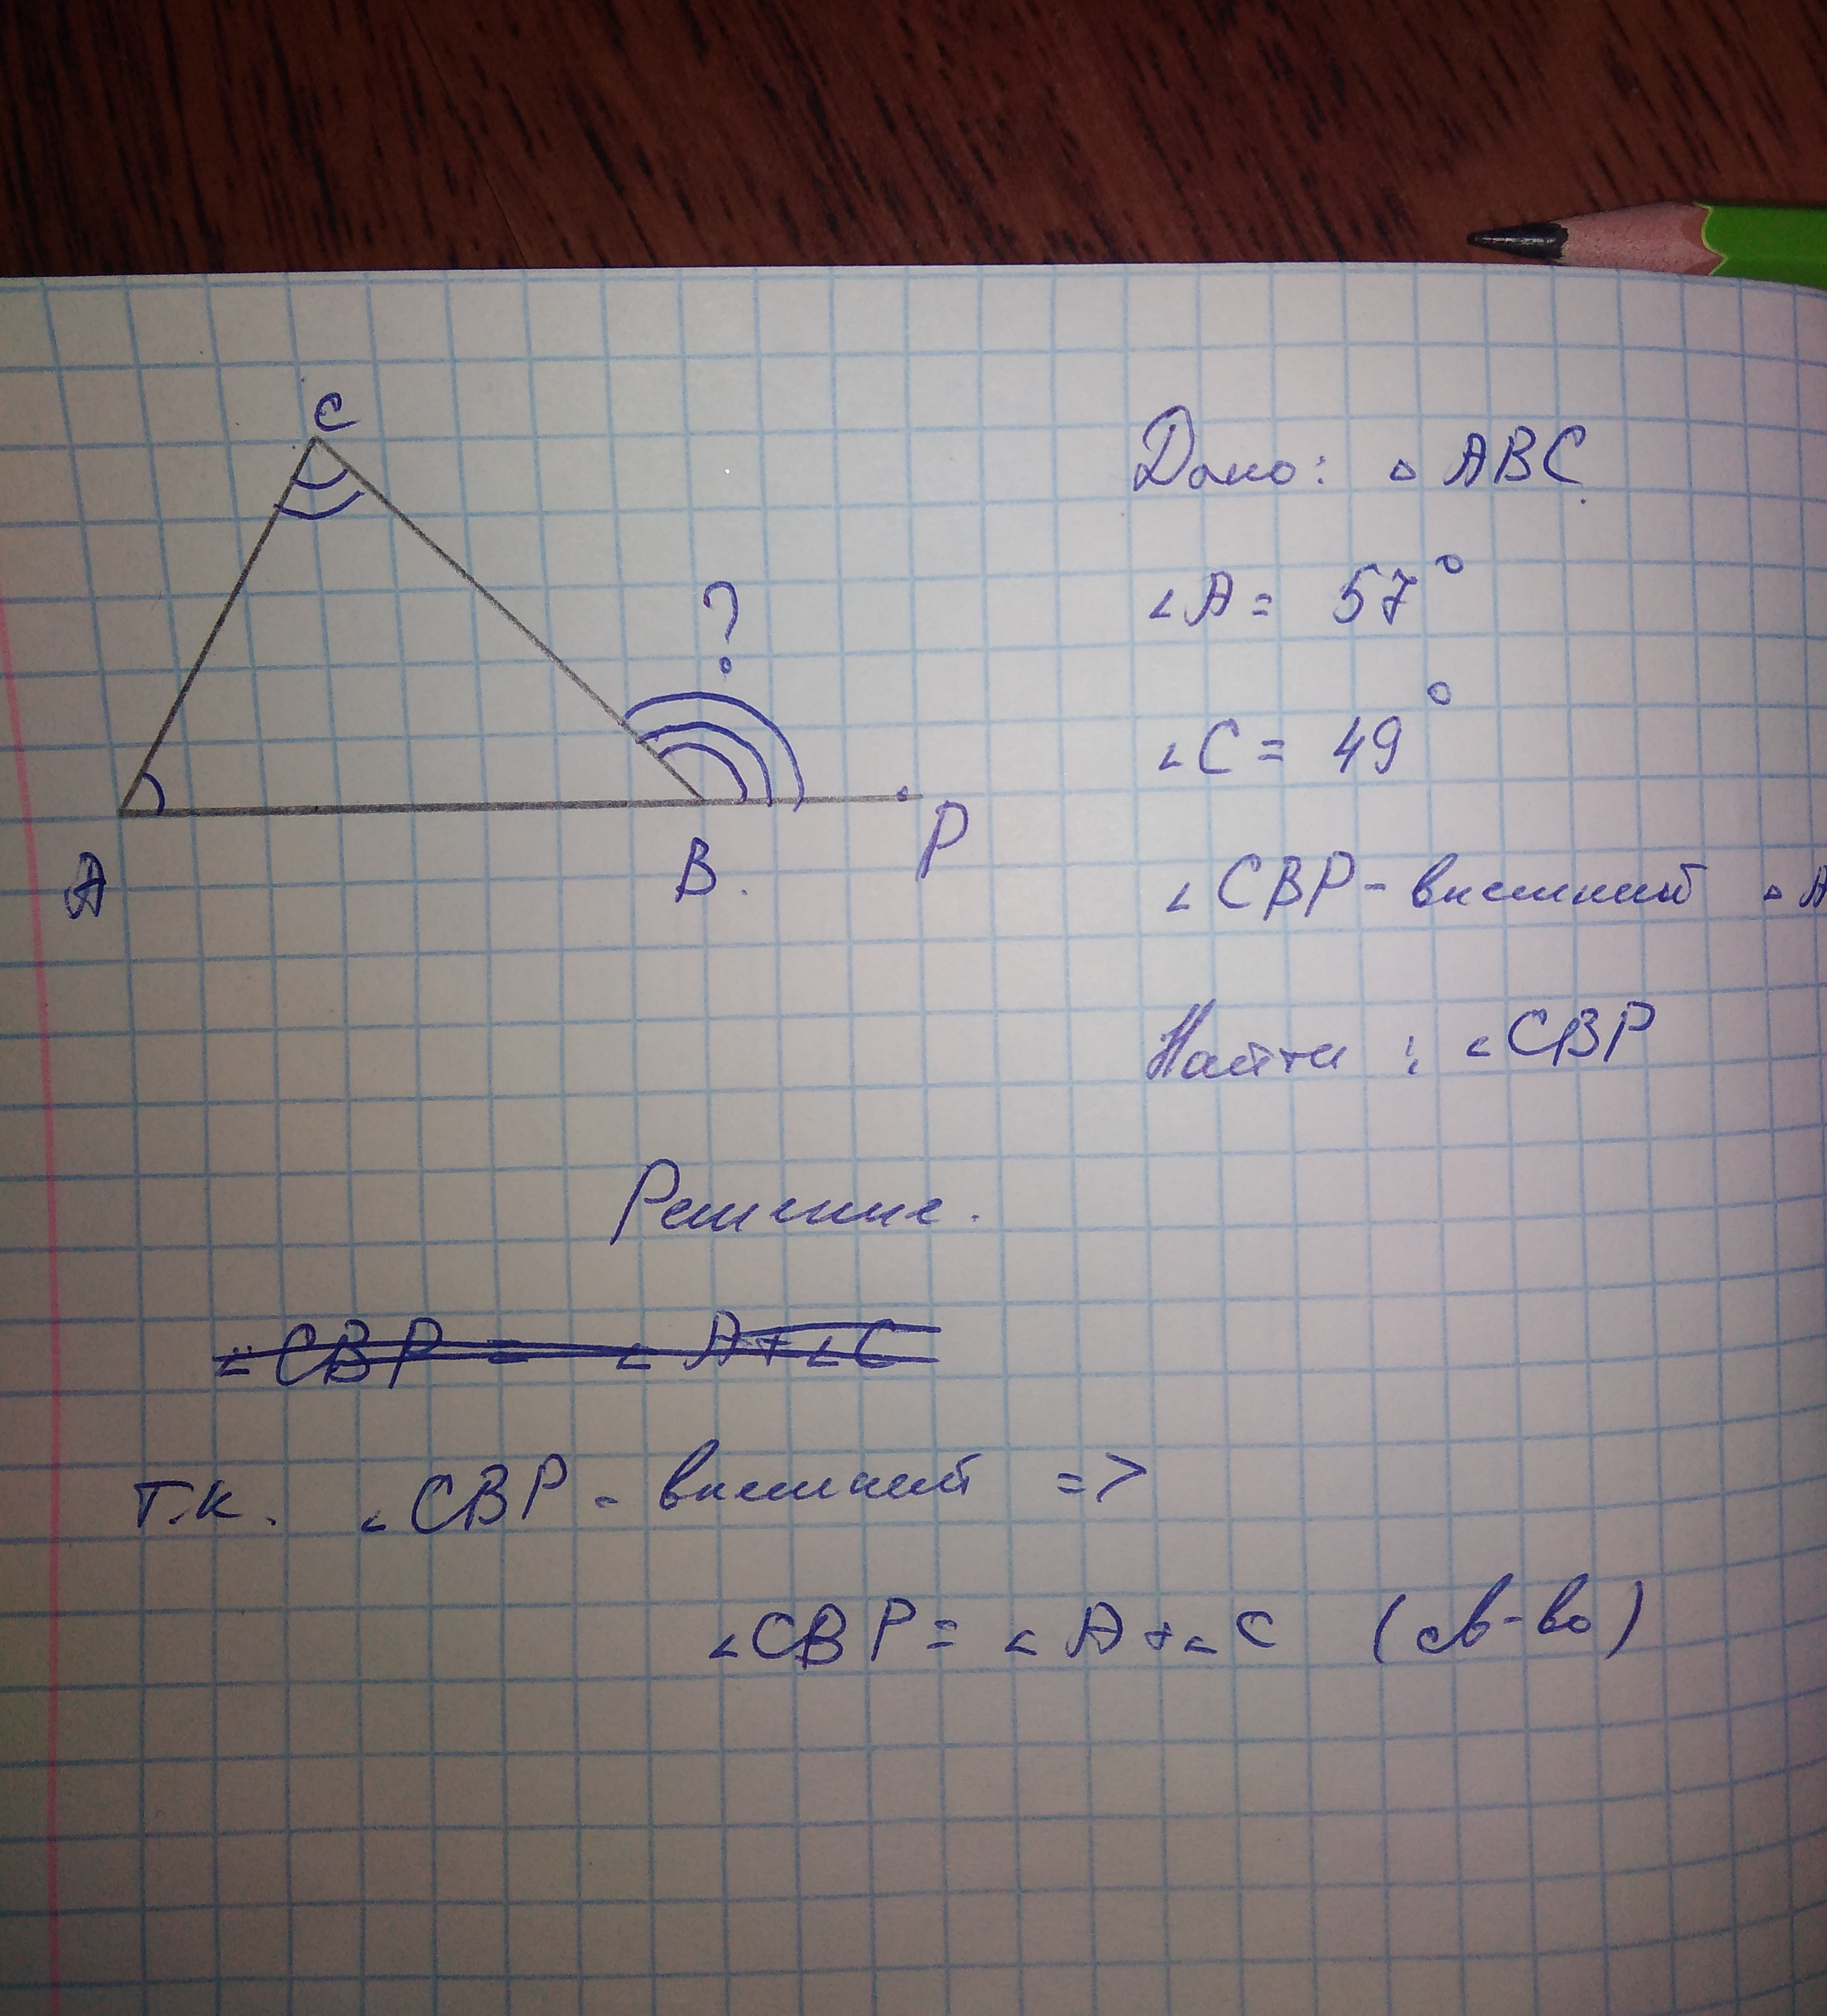 C
?
A
B.
P
Дано: ▵ ABC
∠A = 57°
∠C = 49°
∠CBP - внешний ▵ A
Найти : ∠CBP
Решение.
∠CBP = ∠A+∠C
Т.к. ∠CBP - внешний =>
∠CBP = ∠A+∠C (св-во)